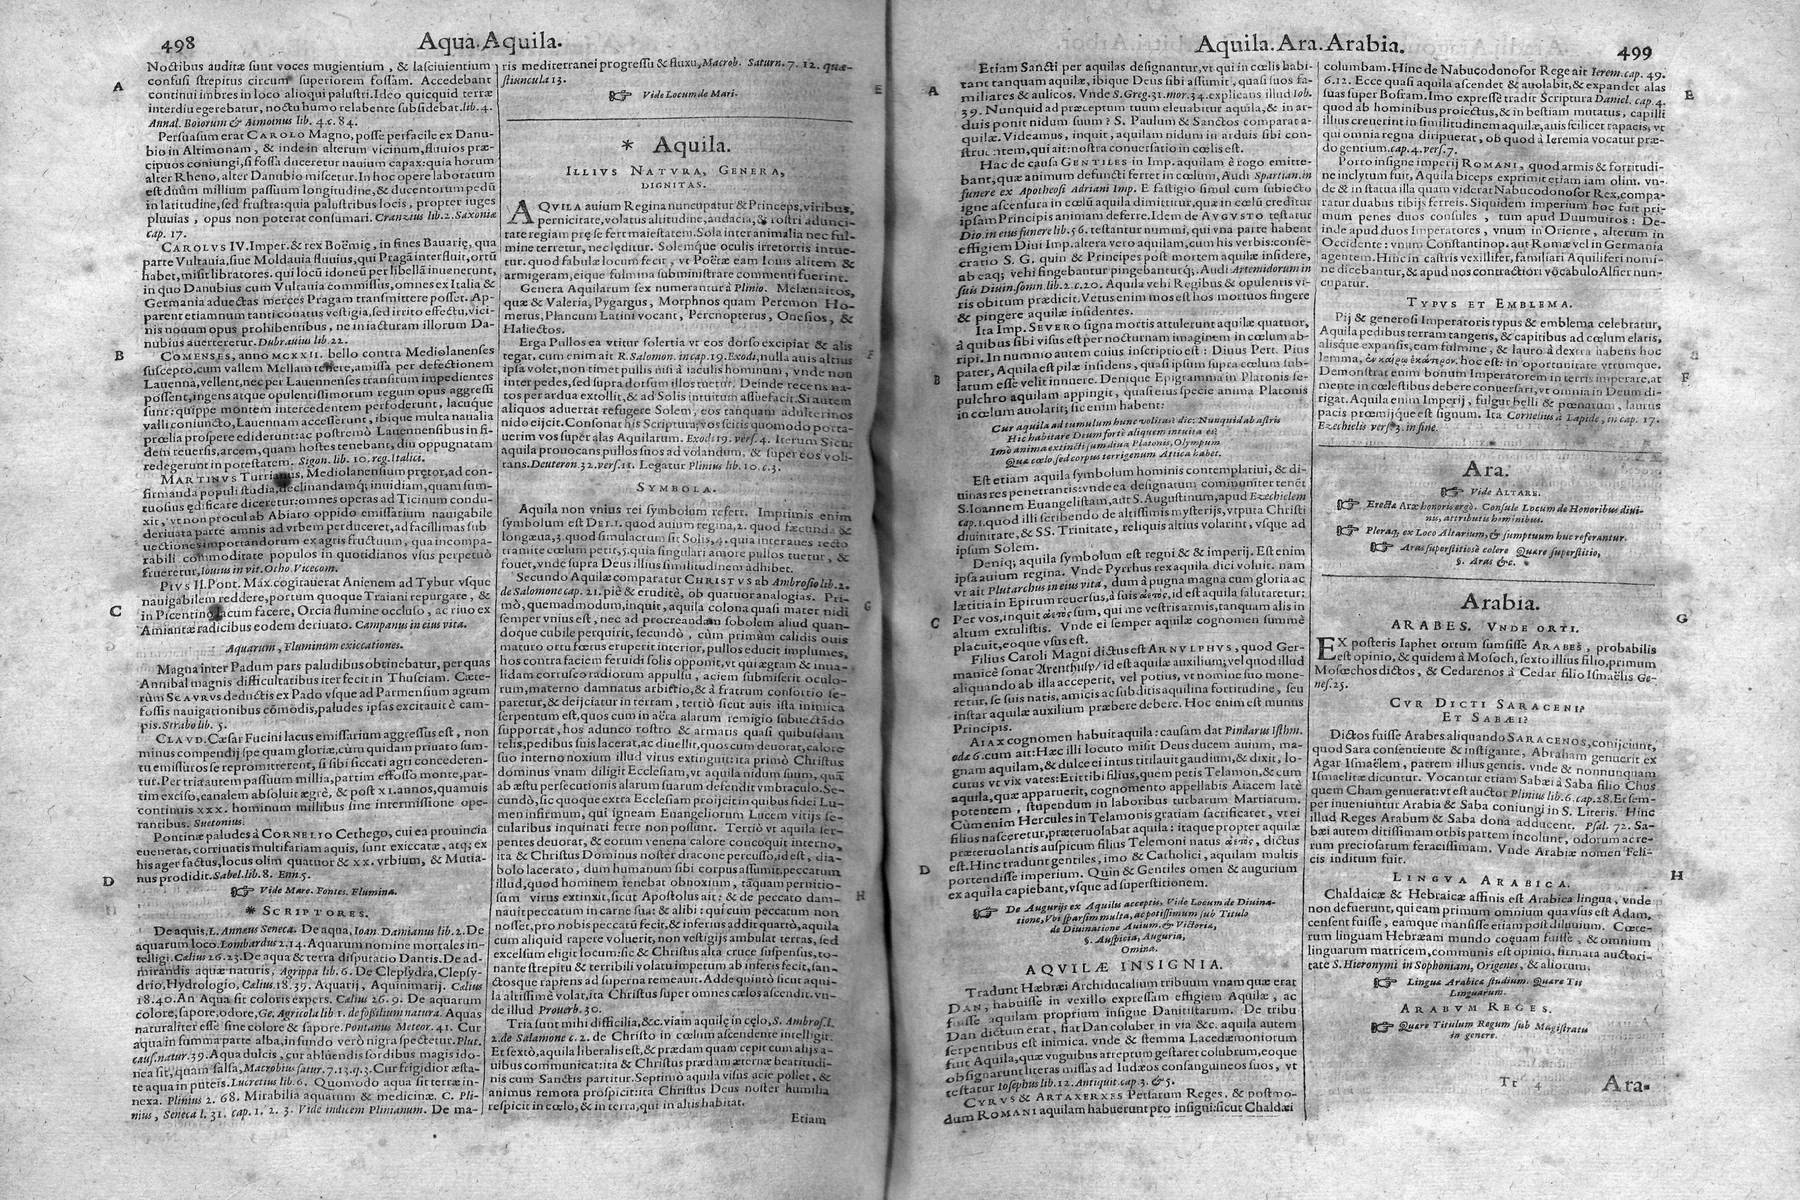 498
Aqua. Aquila.
Noctibus auditæ sunt voces mugientium, & lasciuientium
confusi strepitus circum superiorem fossam. Accedebant
continui imbres in loco alioqui palustri. Ideo quicquid terræ
interdiu egerebatur, noctu humo relabente subsidebat. lib. 4.
Annal. Boiorum & Aimoinus lib. 4. c. 84.
Persuasum erat CAROLO Magno, posse perfacile ex Danu-
bio in Altimonam, & inde in alterum vicinum, fluuios præ-
cipuos coniungi, si fossa duceretur nauium capax: quia horum
alter Rheno, alter Danubio miscetur. In hoc opere laboratum
est duûm millium passuum longitudine, & ducentorum pedũ
in latitudine, sed frustra: quia palustribus locis, propter iuges
pluuias, opus non poterat consumari. Crantzius lib. 2. Saxoniæ
cap. 17.
CAROLVS IV. Imper. & rex Boëmię, in fines Bauarię, qua
parte Vultauia, siue Moldauia fluuius, qui Pragã interfluit, ortũ
habet, misit libratores. qui locũ idoneũ per libellã inuenerunt,
in quo Danubius cum Vultauia commissus, omnes ex Italia &
Germania aduectas merces Pragam transmittere posset. Ap-
parent etiamnum tanti conatus vestigia, sed irrito effectu, vici-
nis nouum opus prohibentibus, ne in iacturam illorum Da-
nubius auerteretur. Dubrauius lib. 22.
COMENSES, anno MCXXII. bello contra Mediolanenses
suscepto, cum vallem Mellam tenere, amissa per defectionem
Lauenna, vellent, nec per Lauennenses transitum impedientes
possent, ingens atque opulentissimorum regum opus aggressi
sunt: quippe montem intercedentem perfoderunt, lacuque
valli coniuncto, Lauennam accesserunt, ibique multa naualia
prœlia prospere ediderunt: ac postremò Lauennensibus in fi-
dem reuersis, arcem, quam hostes tenebant, diu oppugnatam
redegerunt in potestatem. Sigon. lib. 10. reg. Italici.
MARTINVS Turrianus, Mediolanensium prętor, ad con-
firmanda populi studia, declinandamq; inuidiam, quam sum-
tuosius ędificare diceretur: omnes operas ad Ticinum condu-
xit, vt non procul ab Abiaro oppido emissarium nauigabile
deriuata parte amnis ad vrbem perduceret, ad facillimas sub
uectiones importandorum ex agris fructuum, qua incompa-
rabili commoditate populos in quotidianos vsus perpetuò
frueretur, Iouius in vit. Otho. Vicecom.
PIVS II. Pont. Max. cogitauerat Anienem ad Tybur vsque
nauigabilem reddere, portum quoque Traiani repurgare, &
in Picentino lacum facere, Orcia flumine occluso, ac riuo ex
Amiantæ radicibus eodem deriuato. Campanus in eius vita.
Aquarum, Fluminum exiccationes.
Magna inter Padum pars paludibus obtinebatur, per quas
Annibal magnis difficultatibus iter fecit in Thusciam. Cæte-
rùm SCAVRVS deductis ex Pado vsque ad Parmensium agrum
fossis nauigationibus cõmodis, paludes ipsas exicauit è cam-
pis. Strabo lib. 5.
CLAVD. Cæsar Fucini lacus emissarium aggressus est, non
minus compendij spe quam gloriæ, cùm quidam priuato sum-
tu emissuros se repromitterent, si sibi siccati agri concederen-
tur. Per tria autem passuum millia, partim effosso monte, par-
tim exciso, canalem absoluit ægrè, & post XI. annos, quamuis
continuis XXX. hominum millibus sine intermissione ope-
rantibus. Suetonius.
Pontinæ paludes à CORNELIO Cethego, cui ea prouincia
euenerat, corriuatis multifariam aquis, sunt exiccatæ, atq; ex
his ager factus, locus olim quatuor & XX. vrbium, & Mutia-
nus prodidit. Sabel. lib. 8. Enn. 5.
☞ Vide Mare. Fontes. Flumina.
* SCRIPTORES.
De aquis, L. Annæus Seneca. De aqua, Ioan. Damianus lib. 2. De
aquarum loco. Lombardus 2. 14. Aquarum nomine mortales in-
telligi. Cælius 26. 23. De aqua & terra disputatio Dantis. De ad-
mirandis aquæ naturis, Agrippa lib. 6. De Clepsydra, Clepsy-
drio, Hydrologio, Cælius. 18. 39. Aquarij, Aquinimarij. Cælius
18. 40. An Aqua sit coloris expers. Cælius 26. 9. De aquarum
colore, sapore, odore, Ge. Agricola lib 1. de fossilium natura. Aquas
naturaliter esse sine colore & sapore. Pontanus Meteor. 41. Cur
aqua in summa parte alba, in fundo verò nigra spectetur. Plut.
caus. natur. 39. Aqua dulcis, cur abluendis sordibus magis ido-
nea sit, quam salsa, Macrobius satur. 7. 13. q. 3. Cur frigidior æsta-
te aqua in puteis. Lucretius lib. 6. Quomodo aqua sit terræ in-
nexa. Plinius 2. 68. Mirabilia aquarum & medicinæ. C. Pli-
nius, Seneca l. 31. cap. 1. 2. 3. Vide indicem Plinianum. De ma-
ris mediterranei progressu & fluxu, Macrob. Saturn. 7. 12. quæ-
stiuncula 13.
☞ Vide Locum de Mari.
* Aquila.
ILLIVS NATVRA, GENERA,
DIGNITAS.
AQVILA auium Regina nuncupatur & Princeps, viribus,
pernicitate, volatus altitudine, audacia, & rostri adunci-
tate regiam prę se fert maiestatem. Sola inter animalia nec ful-
mine terretur, nec lęditur. Solemque oculis irretortis intue-
tur. quod fabulæ locum fecit, vt Poëtæ eam Iouis alitem &
armigeram, eique fulmina subministrare commenti fuerint.
Genera Aquilarum sex numerantur à Plinio. Melænaitos,
quæ & Valeria, Pygargus, Morphnos quam Percnon Ho-
merus, Plancum Latini vocant, Percnopterus, Onesios, &
Haliectos.
Erga Pullos ea vtitur solertia vt eos dorso excipiat & alis
tegat, cum enim ait R. Salomon. in cap. 19. Exodi, nulla auis altius
ipsa volet, non timet pullis nisi à iaculis hominum, vnde non
inter pedes, sed supra dorsum illos tuetur. Deinde recens na-
tos per ardua extollit, & ad Solis intuitum assuefacit. Si autem
aliquos aduertat refugere Solem, eos tanquam adulterinos
nido eijcit. Consonat his Scriptura; vos scitis quomodo porta-
uerim vos super alas Aquilarum. Exodi 19. vers. 4. Iterum Sicut
aquila prouocans pullos suos ad volandum, & super eos voli-
tans. Deuteron. 32. vers. 11. Legatur Plinius lib. 10. c. 3.
SYMBOLA.
Aquila non vnius rei symbolum refert. Imprimis enim
symbolum est DEI. 1. quod auium regina, 2. quod fæcunda &
longæua, 3. quod simulacrum sit Solis, 4. quia inter aues recto
tramite cœlum petit, 5. quia singulari amore pullos tuetur, &
fouet, vnde supra Deus illius similitudinem adhibet.
Secundo Aquilæ comparatur CHRISTVS ab Ambrosio lib. 2.
de Salomone cap. 21. piè & eruditè, ob quatuor analogias. Pri-
mò, quemadmodum, inquit, aquila colona quasi mater nidi
semper vnius est, nec ad procreandam sobolem aliud quan-
doque cubile perquirit, secundò, cùm primùm calidis ouis
maturo ortu fœtus eruperit interior, pullos educit implumes,
hos contra faciem feruidi solis opponit, vt qui ægram & inua-
lidam corusco radiorum appulsu, aciem submiserit oculo-
rum, materno damnatus arbitrio, & à fratrum consortio se-
paretur, & deijciatur in terram, tertiò sicut auis ista inimica
serpentum est, quos cum in aëra alarum remigio subuectãdo
supportat, hos adunco rostro & armatis quasi quibusdam
telis, pedibus suis lacerat, ac diuellit, quos cum deuorat, calore
suo interno noxium illud virus extinguit: ita primò Christus
dominus vnam diligit Ecclesiam, vt aquila nidum suum, quã
ab æstu persecutionis alarum suarum defendit vmbraculo. Se-
cundò, sic quoque extra Ecclesiam proijcit in quibus fidei Lu-
men infirmum, qui igneam Euangeliorum Lucem vitijs se-
cularibus inquinati ferre non possunt. Tertiò vt aquila ser-
pentes deuorat, & eorum venena calore concoquit interno,
ita & Christus Dominus noster dracone percusso, id est, dia-
bolo lacerato, dum humanum sibi corpus assumit, peccatum
illud, quod hominem tenebat obnoxium, tãquam pernitio-
sum virus extinxit, sicut Apostolus ait: & de peccato dam-
nauit peccatum in carne sua: & alibi: qui cùm peccatum non
nosset, pro nobis peccatũ fecit, & inferius addit quartò, aquila
cum aliquid rapere voluerit, non vestigijs ambulat terras, sed
excelsum eligit locum: sic & Christus alta cruce suspensus, to-
nante strepitu & terribili volatu imperium ab inferis fecit, san-
ctosque rapiens ad superna remeauit. Adde quintò sicut aqui-
la altissimè volat, ita Christus super omnes cœlos ascendit. vn-
de illud Prouerb. 30.
Tria sunt mihi difficilia, &c. viam aquilę in cęlo, S. Ambros. l.
2. de Salomone c. 2. de Christo in cœlum ascendente intelligit.
Et sextò, aquila liberalis est, & prædam quam cepit cum alijs a-
uibus communicat: ita & Christus prædam æternæ beatitudi-
nis cum Sanctis partitur. Septimò aquila visus acie pollet, &
animus remota prospicit: ita Christus Deus noster humilia
respicit in cœlo, & in terra, qui in altis habitat.
Etiam
A
B
C
D
Aquila. Ara. Arabia.
499
Etiam Sancti per aquilas designantur, vt qui in cœlis habi-
tant tanquam aquilæ, ibique Deus sibi assumit, quasi suos fa-
miliares & aulicos. Vnde S. Greg. 31. mor. 34. explicans illud Iob.
39. Nunquid ad præceptum tuum eleuabitur aquila, & in ar-
duis ponit nidum suum? S. Paulum & Sanctos comparat a-
quilæ. Videamus, inquit, aquilam nidum in arduis sibi con-
struentem, qui ait: nostra conuersatio in cœlis est.
Hac de causa GENTILES in Imp. aquilam è rogo emitte-
bant, quæ animum defuncti ferret in cœlum, Audi Spartian. in
funere ex Apotheosi Adriani Imp. E fastigio simul cum subiecto
igne ascensura in cœlũ aquila dimittitur, quæ in cœlũ creditur
ipsam Principis animam deferre. Idem de AVGVSTO testatur
Dio. in eius funere lib. 56. testantur nummi, qui vna parte habent
effigiem Diui Imp. altera vero aquilam, cum his verbis: conse-
cratio S. G. quin & Principes post mortem aquilæ insidere,
ab eaq; vehi fingebantur pingebanturq;. Audi Artemidorum in
suis Diuin. somn. lib. 2. c. 20. Aquila vehi Regibus & opulentis vi-
ris obitum prædicit. Vetus enim mos est hos mortuos fingere
& pingere aquilæ insidentes.
Ita Imp. SEVERO signa mortis attulerunt aquilæ quatuor,
à quibus sibi visus est per nocturnam imaginem in cœlum ab-
ripi. In nummo autem cuius inscriptio est: Diuus Pert. Pius
pater, Aquila est pilæ insidens, quasi ipsum supra cœlum sub-
latum esse velit innuere. Denique Epigramma in Platonis se-
pulchro aquilam appingit, quasi eius specie anima Platonis
in cœlum auolarit; sic enim habent:
Cur aquila ad tumulum hunc volitas? dic: Nunquid ab astris
Hic habitare Deum fortè aliquem intuita es?
Imò animæ extincti sum diua Platonis, Olympum
Quæ cœlo sed corpus terrigenum Attica habet.
Est etiam aquila symbolum hominis contemplatiui, & di-
uinas res penetrantis: vnde ea designatum communiter tenẽt
S. Ioannem Euangelistam, aut S. Augustinum, apud Ezechielem
cap. 1. quod illi scribendo de altissimis mysterijs, vtputa Christi
diuinitate, & SS. Trinitate, reliquis altius volarint, vsque ad
ipsum Solem.
Deniq; aquila symbolum est regni & & imperij. Est enim
ipsa auium regina. Vnde Pyrrhus rex aquila dici voluit. nam
vt ait Plutarchus in eius vita, dum à pugna magna cum gloria ac
lætitia in Epirum reuersus, à suis ἀετὸς, id est aquila salutaretur:
Per vos, inquit ἀετὸς sum, qui me vestris armis, tanquam alis in
altum extulistis. Vnde ei semper aquilæ cognomen summè
placuit, eoque vsus est.
Filius Caroli Magni dictus est ARNVLPHVS, quod Ger-
manicè sonat Arenthulp/ id est aquilæ auxilium; vel quod illud
aliquando ab illa acceperit, vel potius, vt nomine suo mone-
retur, se suis natis, amicis ac subditis aquilina fortitudine, seu
instar aquilæ auxilium præbere debere. Hoc enim est munus
Principis.
AIAX cognomen habuit aquila: causam dat Pindarus isthm.
ode 6. cum ait: Hæc illi locuto misit Deus ducem auium, ma-
gnam aquilam, & dulce ei intus titilauit gaudium, & dixit, lo-
cutus vt vix vates: Erit tibi filius, quem petis Telamon, & cum
aquila, quæ apparuerit, cognomento appellabis Aiacem latè
potentem, stupendum in laboribus turbarum Martiarum.
Cùm enim Hercules in Telamonis gratiam sacrificaret, vt ei
filius nasceretur, præteruolabat aquila: itaque propter aquilæ
præteruolantis auspicum filius Telemoni natus ἀετὸς, dictus
est. Hinc tradunt gentiles, imo & Catholici, aquilam multis
portendisse imperium. Quin & Gentiles omen & augurium
ex aquila capiebant, vsque ad superstitionem.
☞ De Augurijs ex Aquilis acceptis. Vide Locum de Diuina-
tione, Vbi sparsim multa, ac potissimum sub Titulo
de Diuinatione Auium. & Victoria,
§. Auspicia, Auguria,
Omina.
AQVILÆ INSIGNIA.
Tradunt Hæbræi Archiducalium tribuum vnam quæ erat
DAN, habuisse in vexillo expressam effigiem Aquilæ, ac
fuisse aquilam proprium insigne Danitistarum. De tribu
Dan dictum erat, fiat Dan coluber in via &c. aquila autem
serpentibus est inimica. vnde & stemma Lacedæmoniorum
fuit Aquila, quæ vnguibus arreptum gestaret colubrum, eoque
obsignarunt literas missas ad Iudæos consanguineos suos, vt
testatur Iosephus lib. 12. Antiquit. cap 3. & 5.
CYRVS & ARTAXERXES Persarum Reges, & postmo-
dum ROMANI aquilam habuerunt pro insigni: sicut Chaldæi
columbam. Hinc de Nabucodonosor Rege ait Ierem. cap. 49.
6. 12. Ecce quasi aquila ascendet & auolabit, & expandet alas
suas super Bosram. Imo expressè tradit Scriptura Daniel. cap. 4.
quod ab hominibus proiectus, & in bestiam mutatus, capilli
illius creuerint in similitudinem aquilæ, auis scilicet rapacis, vt
qui omnia regna diripuerat, ob quod à Ieremia vocatur præ-
do gentium. cap. 4. vers. 7.
Porro insigne imperij ROMANI, quod armis & fortitudi-
ne inclytum fuit, Aquila biceps exprimit etiam iam olim. vn-
de & in statua illa quam viderat Nabucodonosor Rex, compa-
ratur duabus tibijs ferreis. Siquidem imperium hoc fuit pri-
mum penes duos consules, tum apud Duumuiros: De-
inde apud duos Imperatores, vnum in Oriente, alterum in
Occidente: vnum Constantinop. aut Romæ vel in Germania
agentem. Hinc in castris vexillifer, familiari Aquiliferi nomi-
ne dicebantur, & apud nos contractiori vocabulo Alfier nun-
cupatur.
TYPVS ET EMBLEMA.
Pij & generosi Imperatoris typus & emblema celebratur,
Aquila pedibus terram tangens, & capitibus ad cœlum elatis,
alisque expansis, cum fulmine, & lauro à dextra habens hoc
lemma, ἐν καίρῳ ἑκάτερον. hoc est: in oportunitate vtrumque.
Demonstrat enim bonum Imperatorem in terris imperare, at
mente in cœlestibus debere conuersari, vt omnia in Deum di-
rigat. Aquila enim Imperij, fulgur belli & pœnarum, laurus
pacis præmijque est signum. Ita Cornelius à Lapide, in cap. 17.
Ezechielis vers. 3. in fine.
Ara.
☞ Vide ALTARE.
☞ Erectæ Aræ honoris ergò. Consule Locum de Honoribus diui-
nis, attributis hominibus.
☞ Pleraq; ex Loco Altarium, & sumptuum huc referantur.
☞ Aras superstitiosè colere Quære superstitio,
§. Aras &c.
Arabia.
ARABES. VNDE ORTI.
EX posteris Iaphet ortum sumsisse ARABES, probabilis
est opinio, & quidem à Mosoch, sexto illius filio, primum
Mosœchos dictos, & Cedarenos à Cedar filio Ismaëlis Ge-
nes. 25.
CVR DICTI SARACENI?
ET SABÆI?
Dictos fuisse Arabes aliquando SARACENOS, conijciunt,
quod Sara consentiente & instigante, Abraham genuerit ex
Agar Ismaëlem, patrem illius gentis. vnde & nonnunquam
Ismaelitæ dicuntur. Vocantur etiam Sabæi à Saba filio Chus
quem Cham genuerat: vt est auctor Plinius lib. 6. cap. 28. Et sem-
per inueniuntur Arabia & Saba coniungi in S. Literis. Hinc
illud Reges Arabum & Saba dona adducent. Psal. 72. Sa-
bæi autem ditissimam orbis partem incolunt, odorum acre-
rum preciosarum feracissimam. Vnde Arabiæ nomen Feli-
cis inditum fuit.
LINGVA ARABICA.
Chaldaicæ & Hebraicæ affinis est Arabica lingua, vnde
non defuerunt, qui eam primum omnium qua vsus est Adam,
censent fuisse, eamque mansisse etiam post diluuium. Cœte-
rum linguam Hebræam mundo coquam fuisse, & omnium
linguarum matricem, communis est opinio, firmata auctori-
tate S. Hieronymi in Sophoniam, Origenes, & aliorum.
☞ Lingua Arabica studium. Quære Tit
Linguarum.
ARABVM REGES.
☞ Quære Titulum Regum sub Magistratu
in genere.
Tt 4
Ara-
A
B
C
D
E
F
G
H